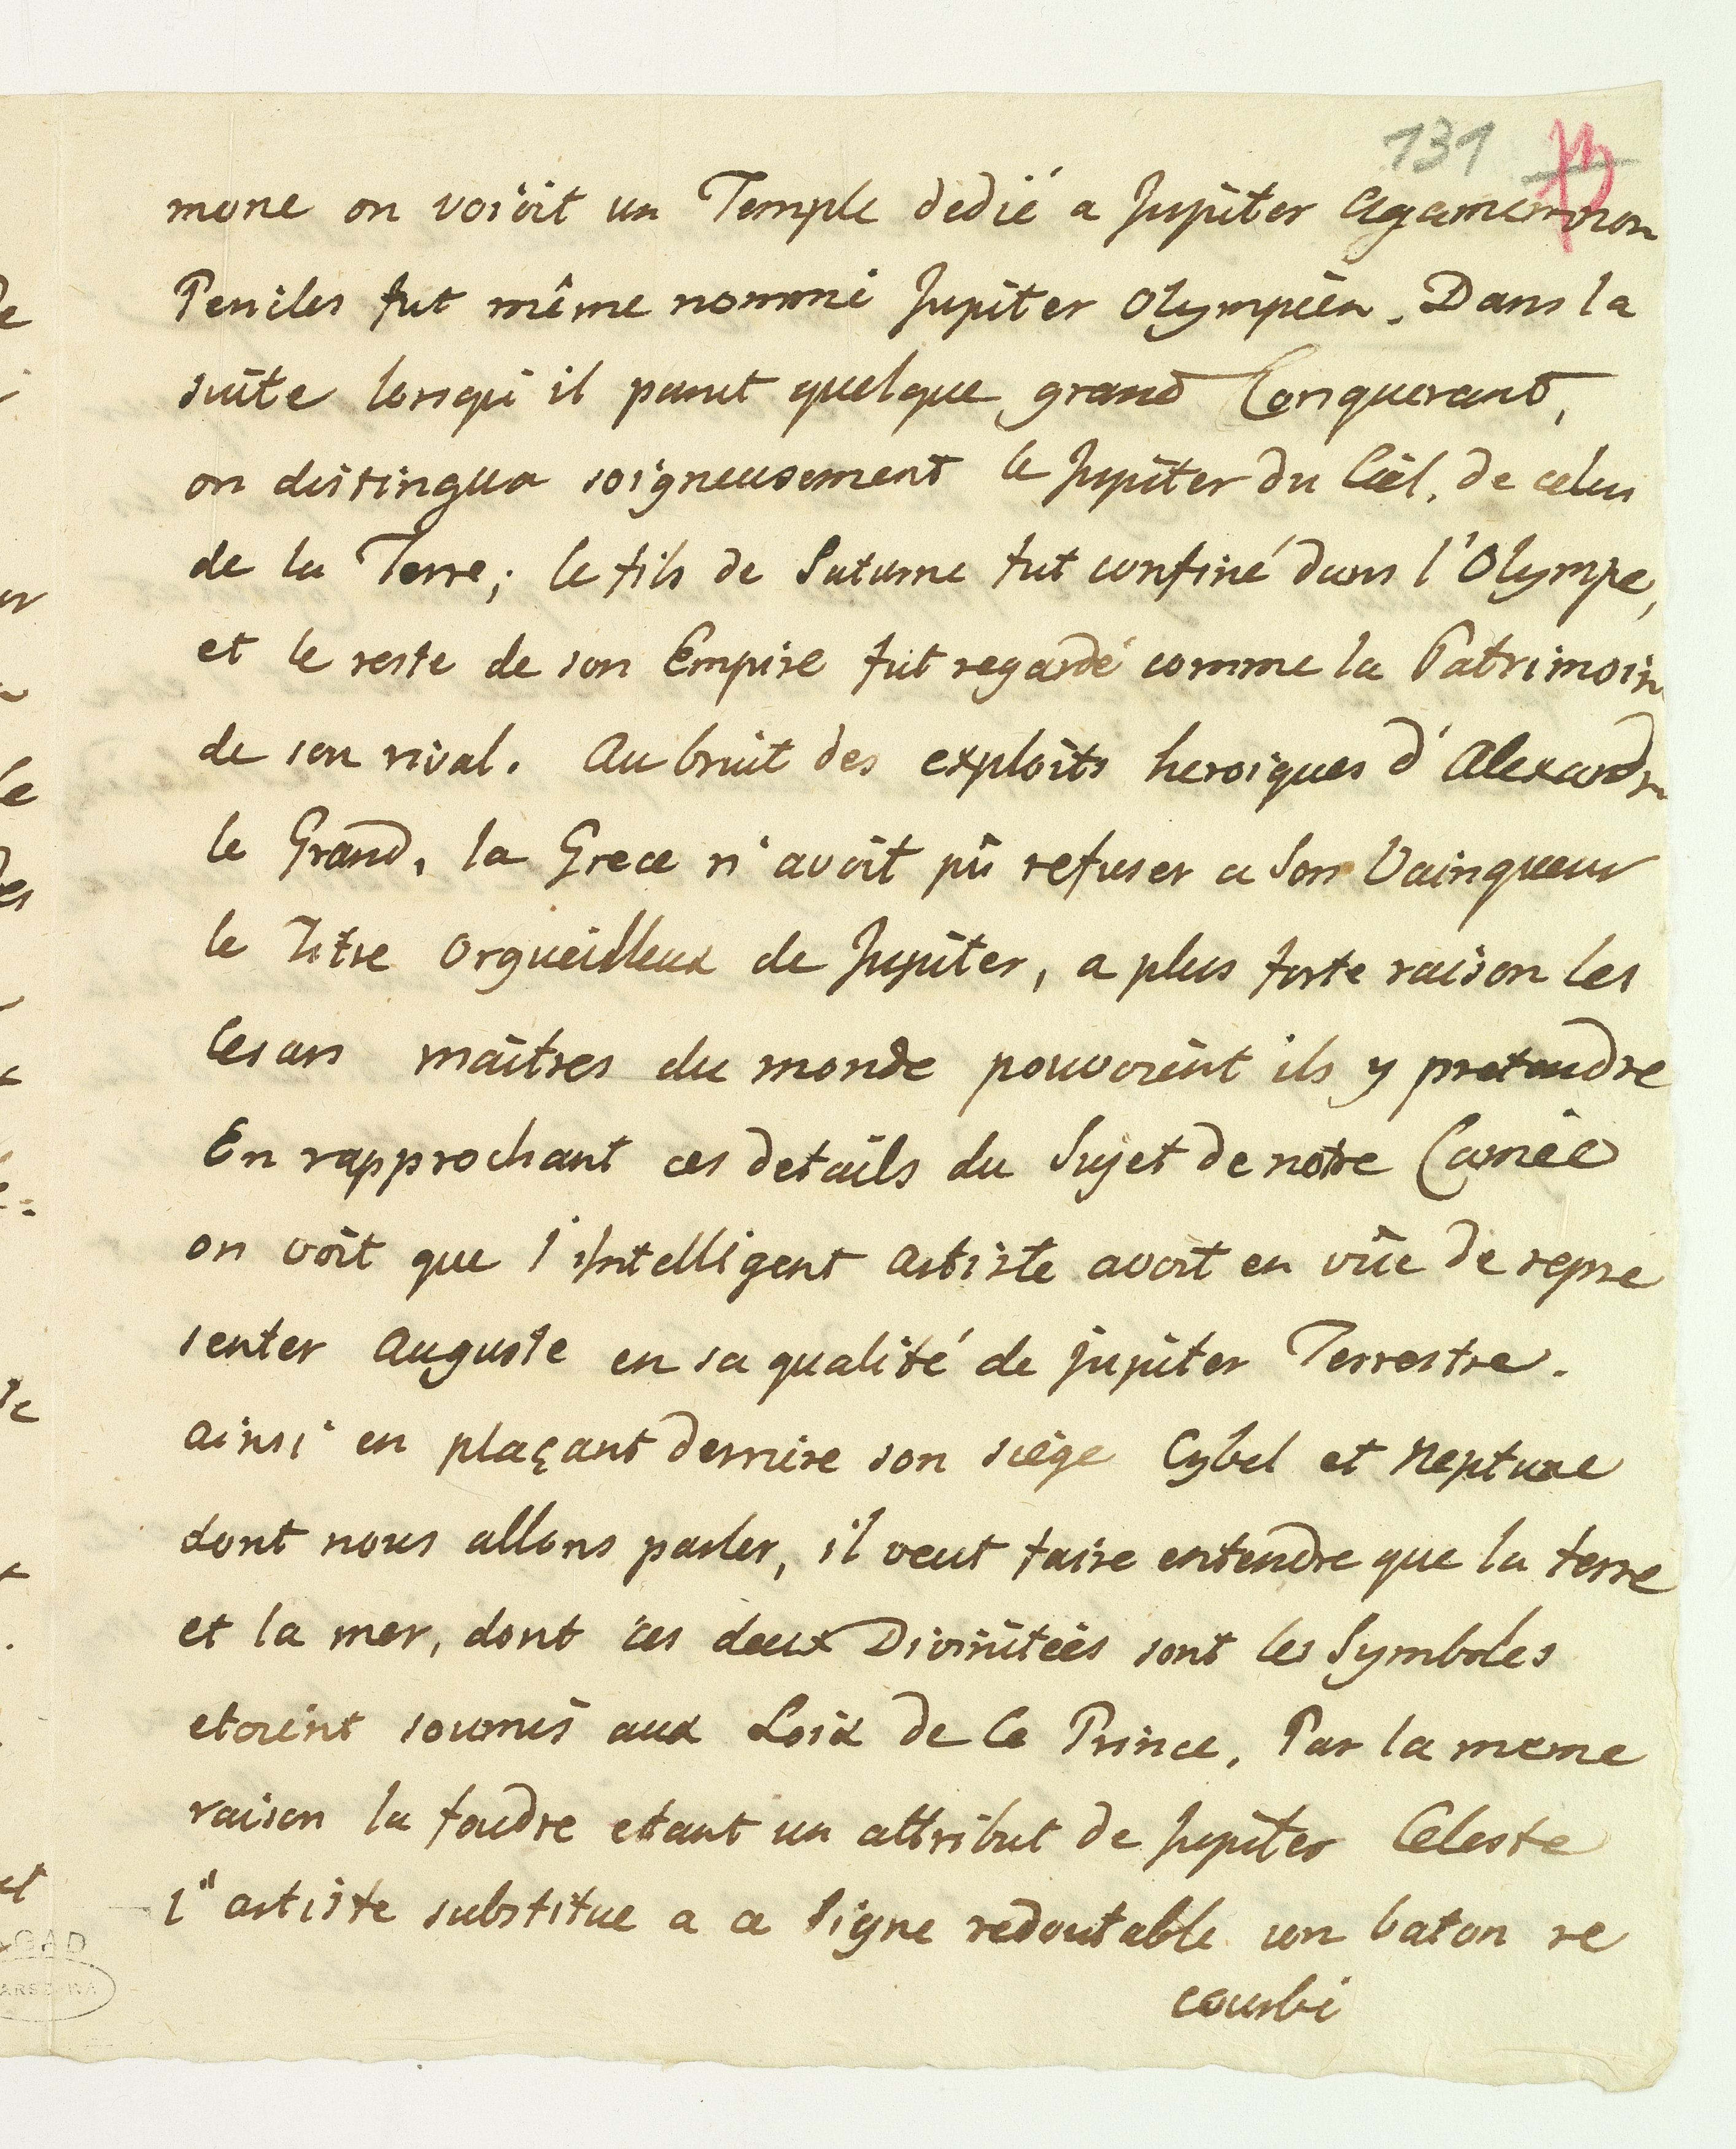 139 73
mone on voiöit un Temple dedié a Jupiter Agamemnon
Pericles fut même nommé Jupiter Olympien. Dans la
suite lorsqu'il parut quelque grand Conquerant,
on distingua soigneusement le Jupiter du Ciel, de celui
de la Terre; le fils de Saturne fut confiné dans l'Olympe,
et le reste de son Empire fut regardé comme la Patrimoin
de son rival. Au bruit des exploits heroiques d'Alexandr
le Grand, la Grece n'avoit pû refuser a Son Vainqueur
le Titre Orgueilleux de Jupiter, a plus forte raison les
Cesars maitres du monde pouvoient ils y pretendre
En rapprochant ces details du Sujet de notre Camée
on voit que l'intelligent Artiste avoit en vûe de repre
senter Auguste en sa qualité de Jupiter Terrestre.
ainsi en plaçant derriere son siège Cybel et Neptune
dont nous allons parler, il veut faire entendre que la terre
et la mer, dont ces deux Divinitées sont les Symboles
etoient soumis aux Loix de Ce Prince. Par la meme
raison la foudre etant un attribut de Jupiter Celeste
l'artiste substitue a ce Signe redoutable un baton re
courbé